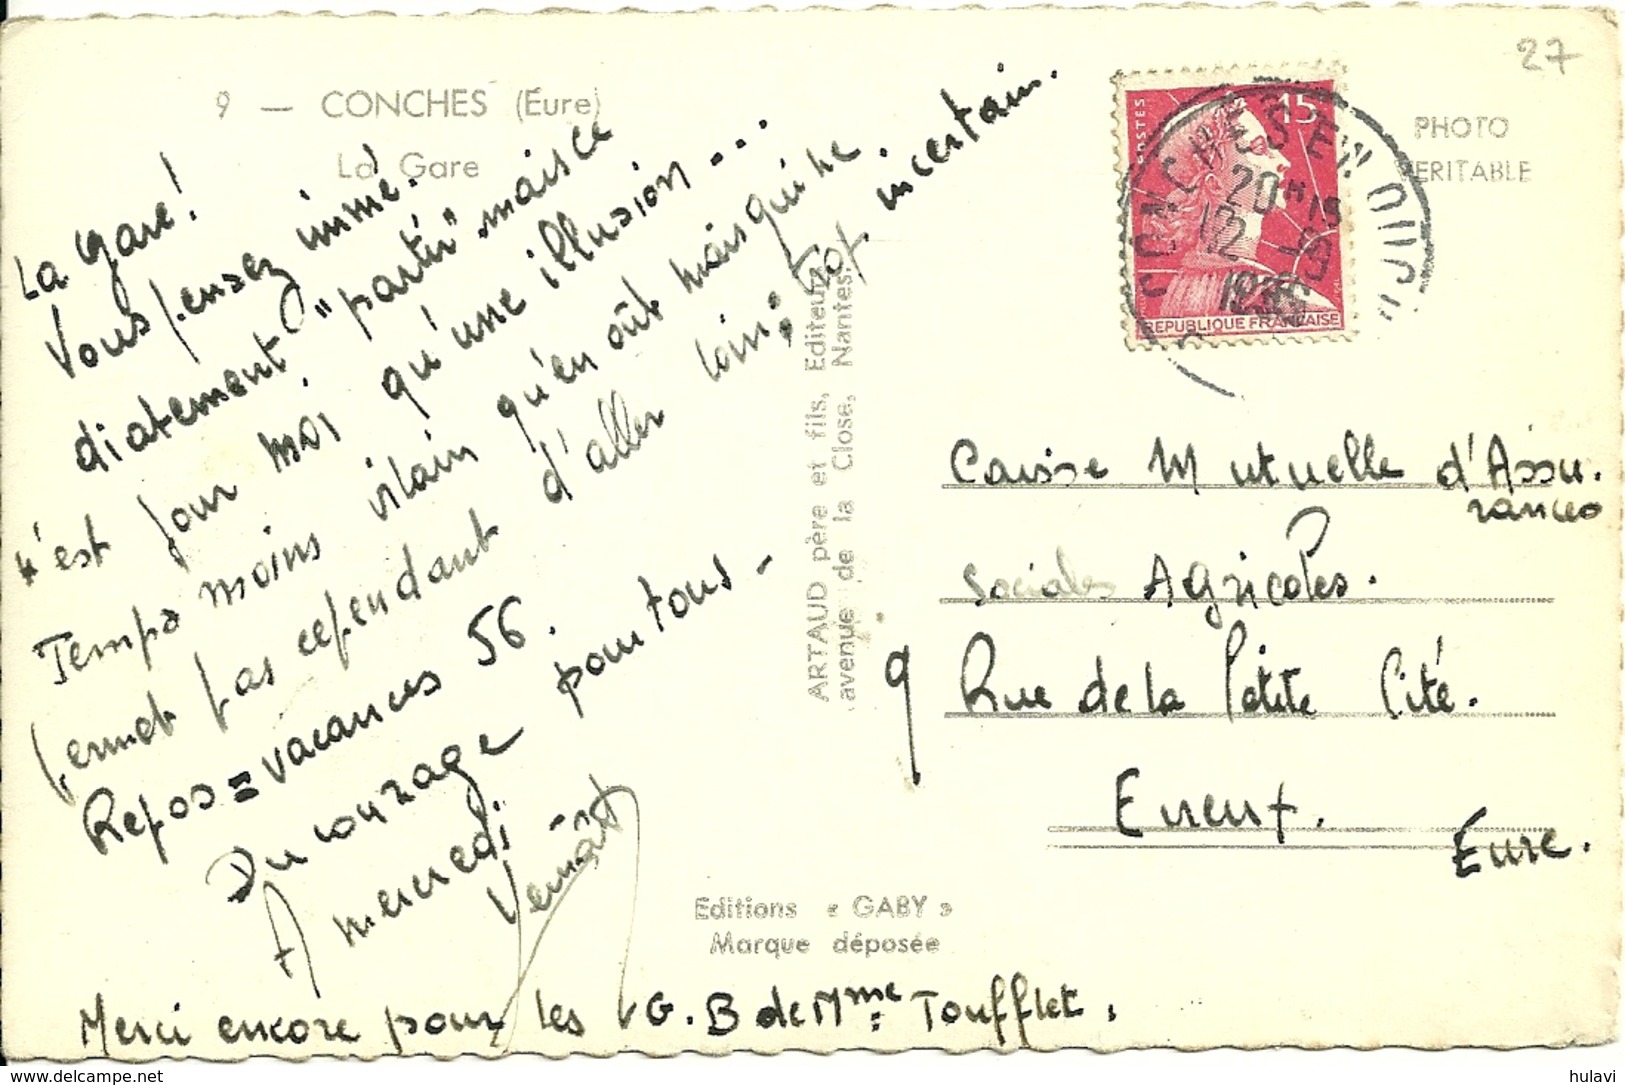 27
9 — CONCHES (Eure)
La Gare
PHOTO
VERITABLE
POSTES
15
REPUBLIQUE FRANÇAISE
CONCHES EN OUCHE
20H15
12 -9
1956
La Gare!
Vous pensez immé.
diatement "partir" mais ce
n'est pour moi qu'une illusion...
Temps moins vilain qu'en août mais qui ne
permet pas cependant d'aller loin; trop incertain.
Repos = vacances 56.
Du courage pour tous -
A mercredi -
ARTAUD père et fils, Editeurs
avenue de la Close, Nantes.
Caisse Mutuelle d'Assu.
rances
Sociales Agricoles.
9 Rue de la Petite Cité.
Evreux.
Eure.
Editions « GABY »
Marque déposée
Merci encore pour les G.B de Mme Toufflet.
hulavi